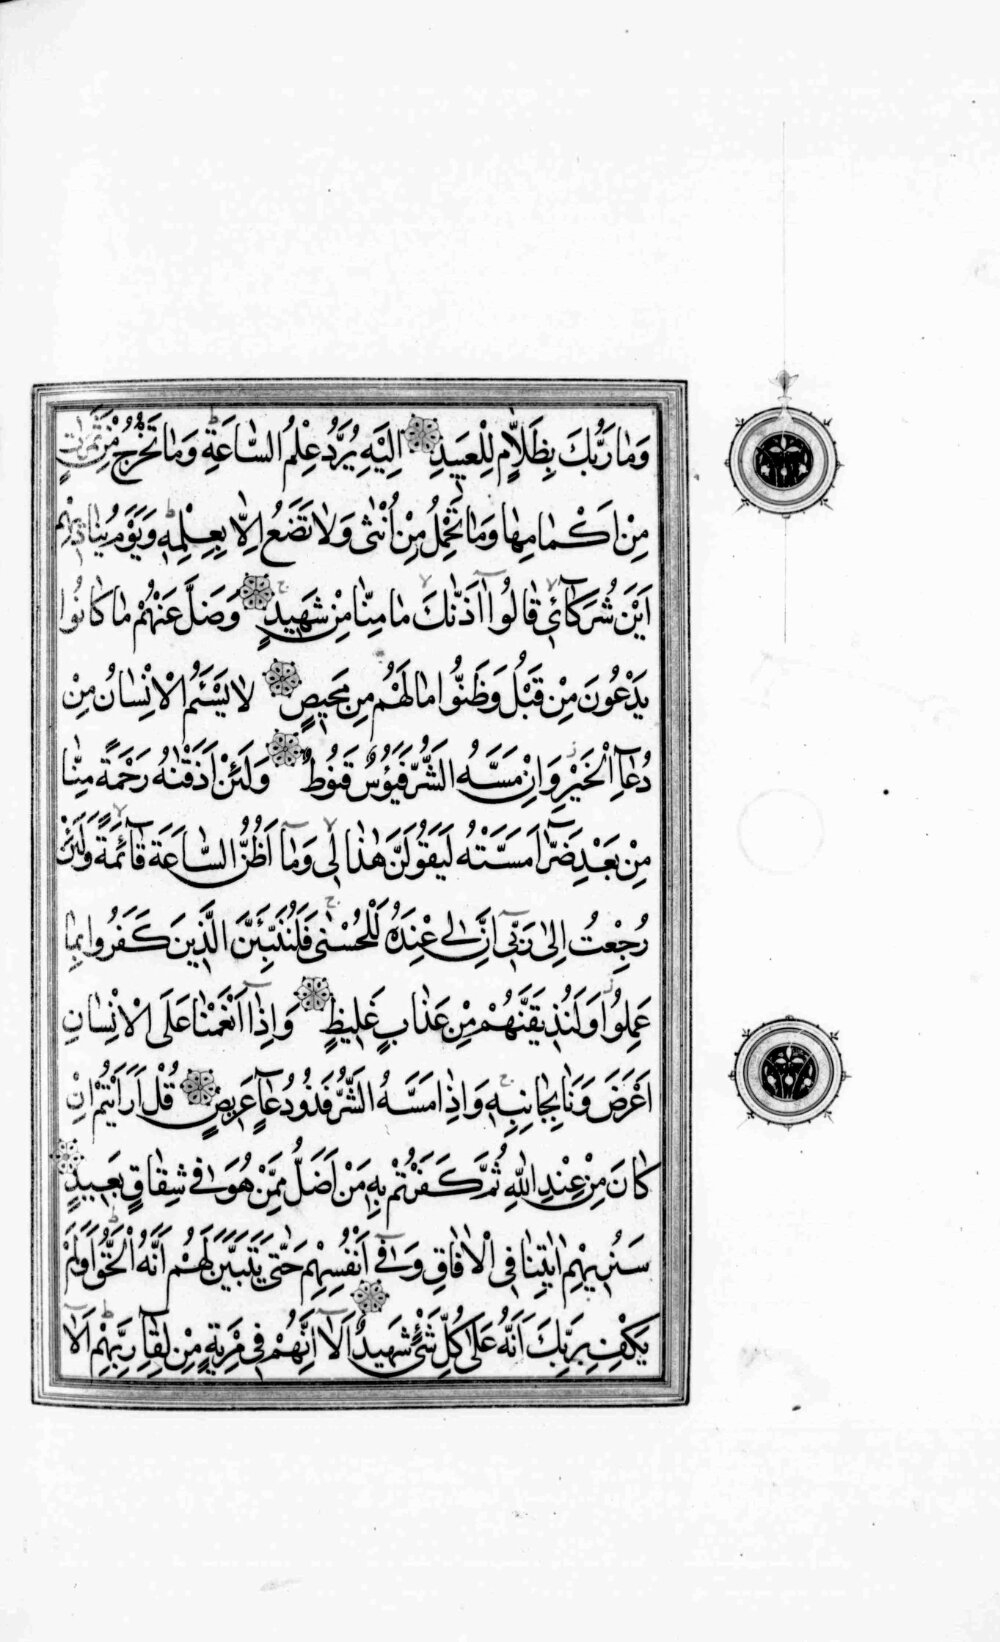 وَمَا رَبُّكَ بِظَلَّامٍ لِلْعَبِيدِ اِلَيْهِ يُرَدُّ عِلْمُ السَّاعَةِ وَمَا تَخْرُجُ مِنْ ثَمَرَاتٍ
مِنْ اَكْمَامِهَا وَمَا تَحْمِلُ مِنْ اُنْثٰى وَلَا تَضَعُ اِلَّا بِعِلْمِهٖ وَيَوْمَ يُنَادٖيهِمْ
اَيْنَ شُرَكَآئٖ قَالُوٓا اٰذَنَّاكَ مَا مِنَّا مِنْ شَهٖيدٍ وَضَلَّ عَنْهُمْ مَا كَانُوا
يَدْعُونَ مِنْ قَبْلُ وَظَنُّوا مَا لَهُمْ مِنْ مَحٖيصٍ لَا يَسْـَٔمُ الْاِنْسَانُ مِنْ
دُعَآءِ الْخَيْرِ وَاِنْ مَسَّهُ الشَّرُّ فَيَؤُسٌ قَنُوطٌ وَلَئِنْ اَذَقْنَاهُ رَحْمَةً مِنَّا
مِنْ بَعْدِ ضَرَّآءَ مَسَّتْهُ لَيَقُولَنَّ هٰذَا لٖى وَمَآ اَظُنُّ السَّاعَةَ قَآئِمَةً وَلَئِنْ
رُجِعْتُ اِلٰى رَبّٖٓى اِنَّ لٖى عِنْدَهُ لَلْحُسْنٰى فَلَنُنَبِّئَنَّ الَّذٖينَ كَفَرُوا بِمَا
عَمِلُوا وَلَنُذٖيقَنَّهُمْ مِنْ عَذَابٍ غَلٖيظٍ وَاِذَآ اَنْعَمْنَا عَلَى الْاِنْسَانِ
اَعْرَضَ وَنَاٰ بِجَانِبِهٖ وَاِذَا مَسَّهُ الشَّرُّ فَذُو دُعَآءٍ عَرٖيضٍ قُلْ اَرَاَيْتُمْ اِنْ
كَانَ مِنْ عِنْدِ اللهِ ثُمَّ كَفَرْتُمْ بِهٖ مَنْ اَضَلُّ مِمَّنْ هُوَ فٖى شِقَاقٍ بَعٖيدٍ
سَنُرٖيهِمْ اٰيَاتِنَا فِى الْاٰفَاقِ وَفٖٓى اَنْفُسِهِمْ حَتّٰى يَتَبَيَّنَ لَهُمْ اَنَّهُ الْحَقُّ اَوَلَمْ
يَكْفِ بِرَبِّكَ اَنَّهُ عَلٰى كُلِّ شَىْءٍ شَهٖيدٌ اَلَآ اِنَّهُمْ فٖى مِرْيَةٍ مِنْ لِقَآءِ رَبِّهِمْ اَلَآ